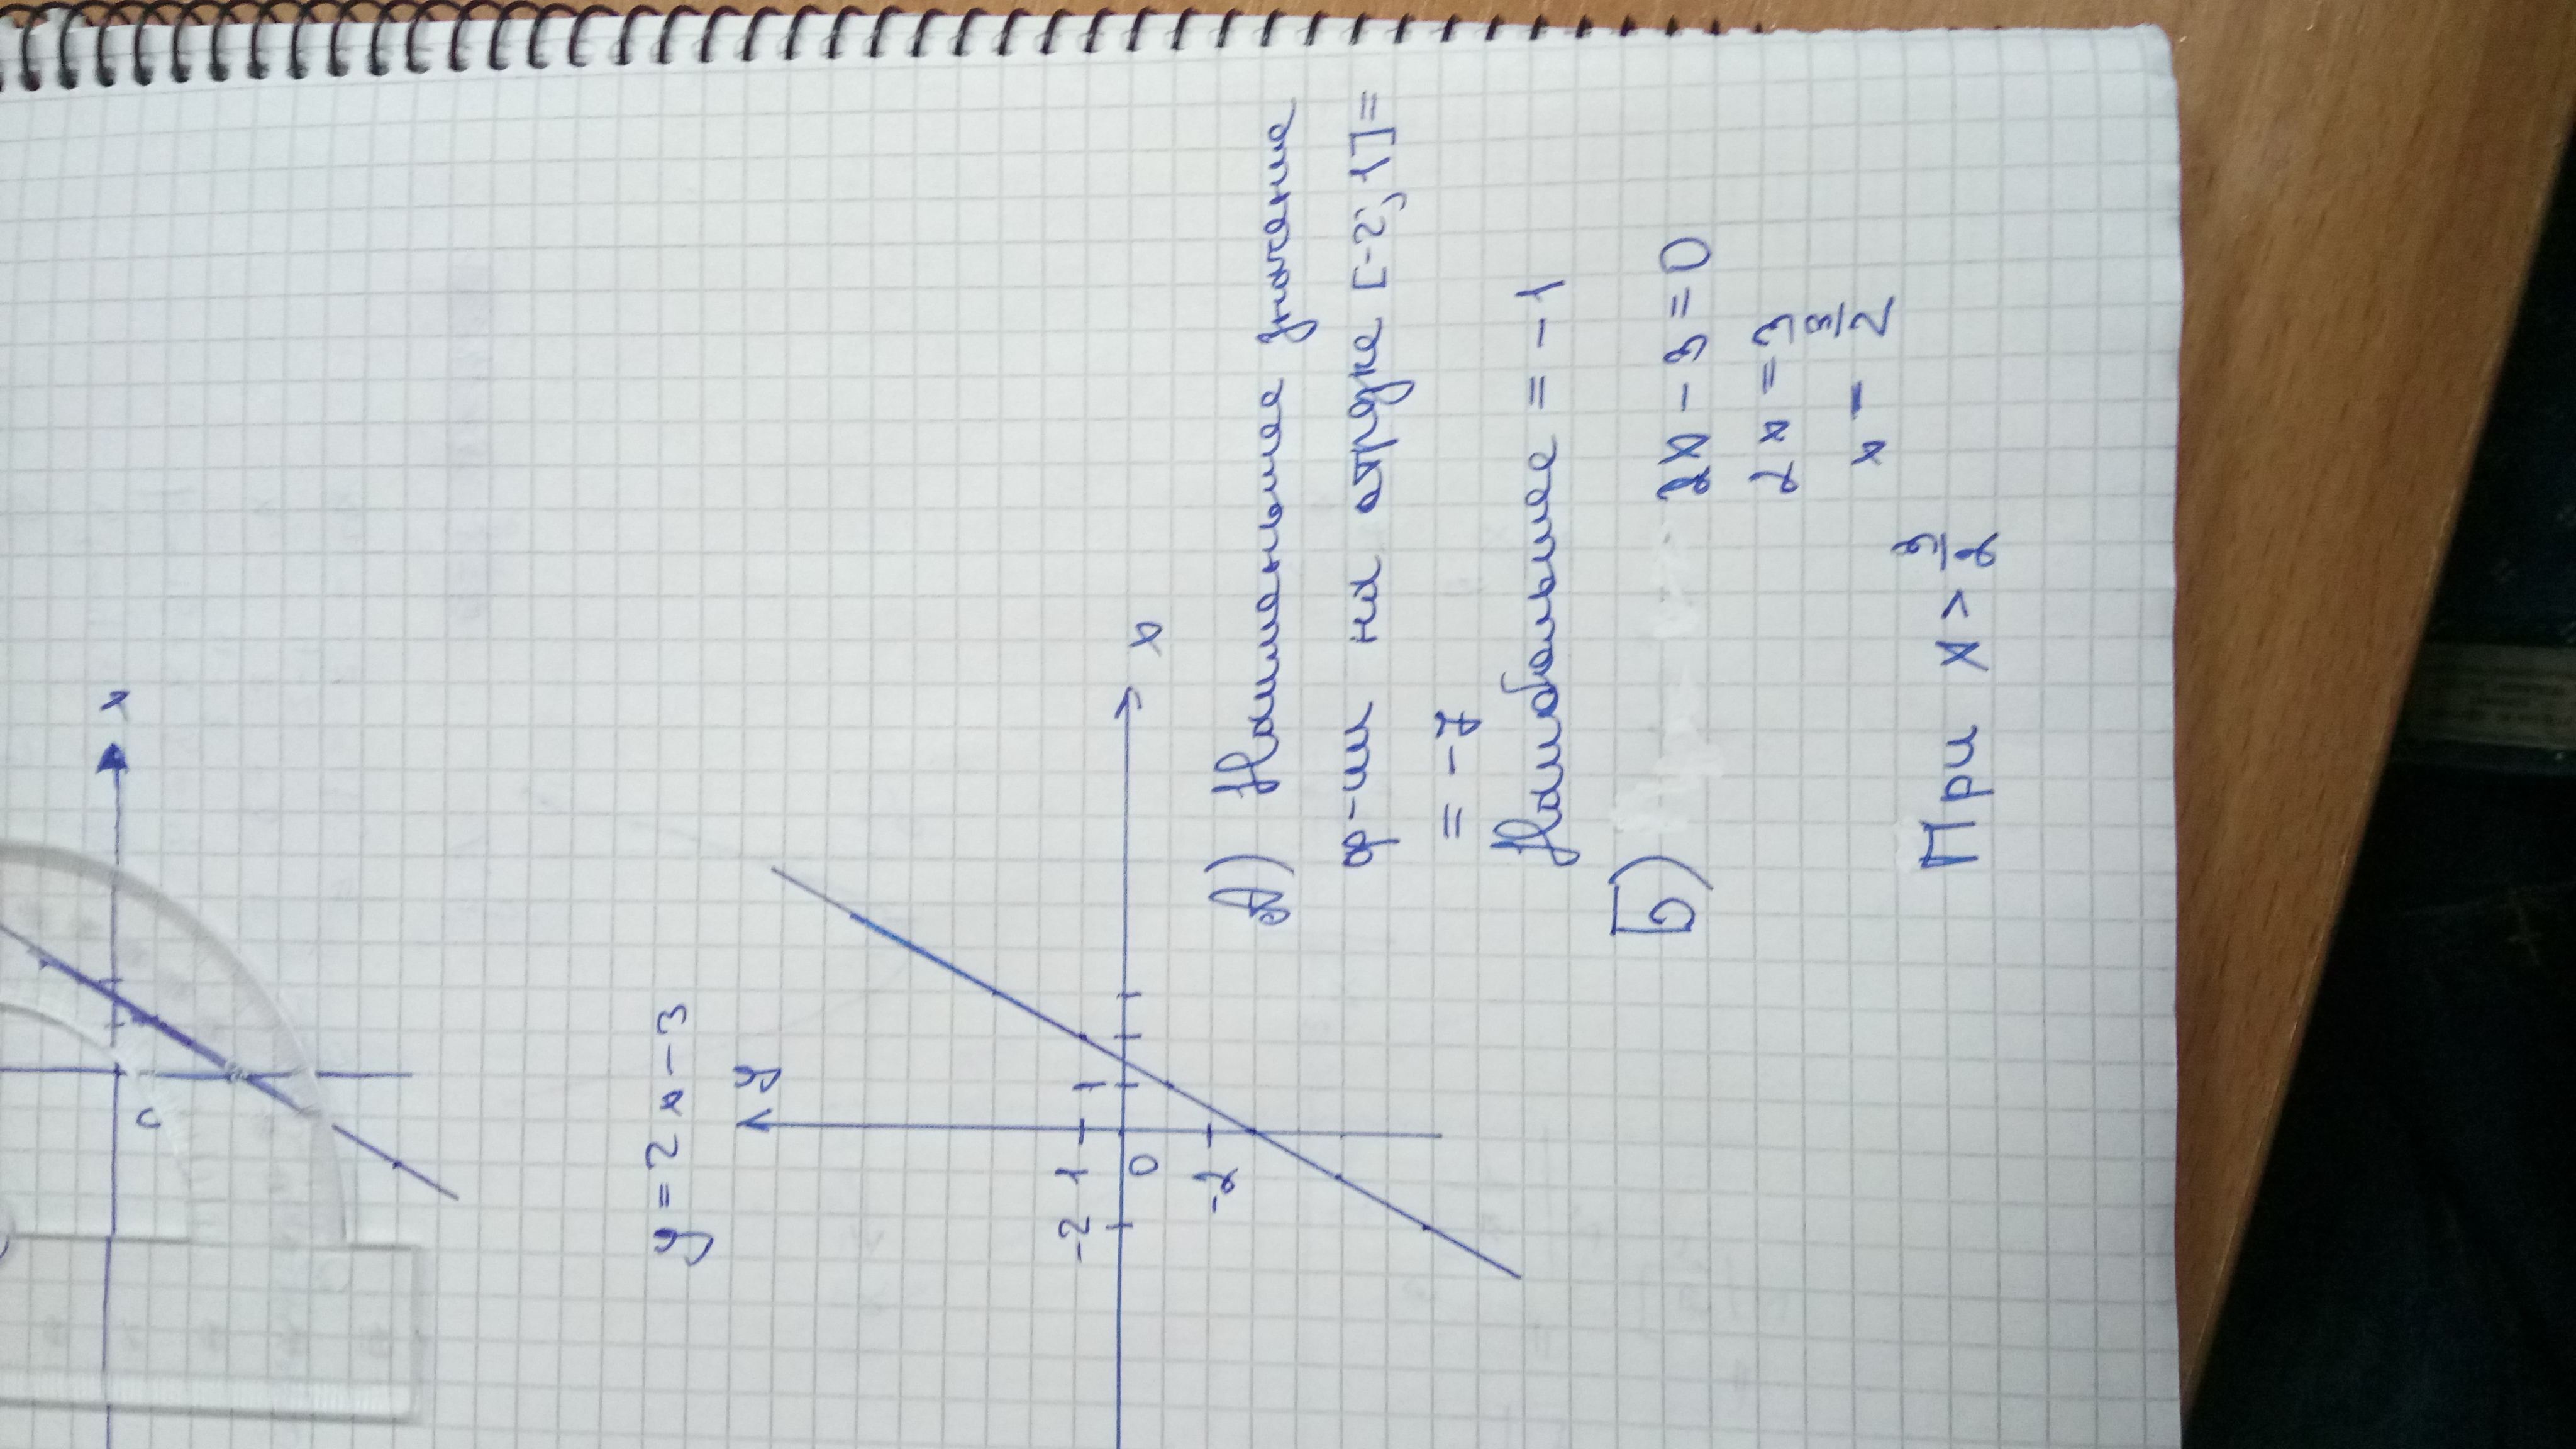 x
0
y = 2x - 3
y
1
1
-2
0
x
-2
А) Наименьшее значение
ф-ии на отрзке [-2; 1] =
= -7
Наибольшее = -1
Б) 2x - 3 = 0
2x = 3
x - 3/2
При x > 3/2